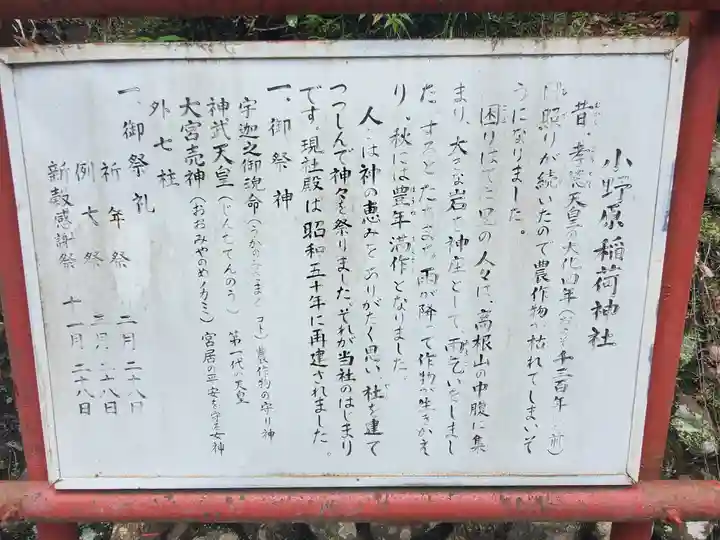 小野原稲荷神社
昔、孝徳天皇の大化四年（およそ千三百年 前）
は照りが続いたので農作物が枯れてしまいそ
うになりました。
困りはてた 里の人々は、高根山の中腹に集
まり、大きな岩を神座として、雨乞いをしまし
た。するとたちまち、雨が降って作物が生きかえ
り、秋には豊年満作となりました。
人々は神の恵みをありがたく思い、社を建て
つつしんで神々を祭りました。それが当社のはじまり
です。現社殿は、昭和五十年に再建されました。
一、御祭神
宇迦之御魂命（うかの みたまの ミコト）農作物の守り神
神武天皇（じんむてんのう）第一代の天皇
大宮売神（おおみやのめノカミ）宮居の平安を守る女神
外七柱
一、御祭礼
祈年祭 二月二八日
例大祭 三月二八日
新穀感謝祭 十一月二八日